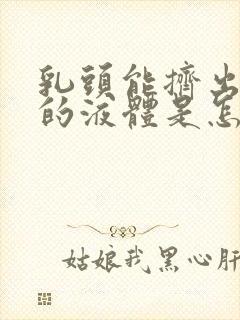 乳頭能擠出
的液體是怎
姑娘我黑心肝